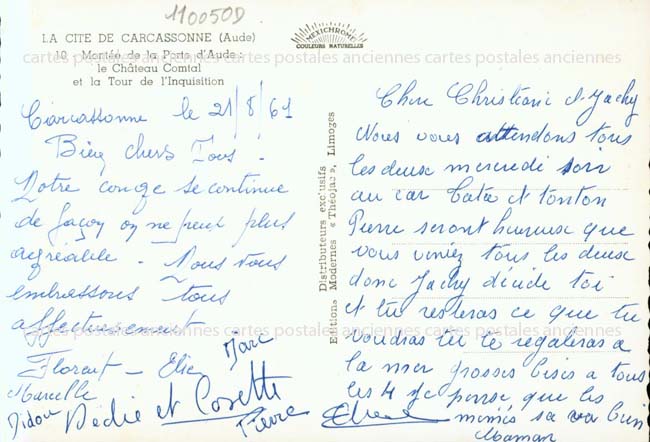 110050D
LA CITE DE CARCASSONNE (Aude)
10 - Montée de la Porte d'Aude :
le Château Comtal
et la Tour de l'Inquisition
MEXICHROME
COULEURS NATURELLES
cartes postales anciennes cartes postales anciennes cartes postales anciennes
Carcassonne le 21/8/61
Bien chers Tous !
Notre congé se continue
de façon on ne peut plus
agréable - Nous vous
embrassons tous
affectueusement
Florent - Elie Marc
Marcelle
Didou Dédie et Cosette
Pierre
Distributeurs exclusifs
Editions Modernes « Théojac », Limoges
Chère Christiane et Jacky
Nous vous attendons tous
les deux mercredi soir
au car Tata et tonton
Pierre seront heureux que
vous veniez tous les deux
donc Jacky décide toi
et tu resteras ce que tu
voudras tu te régaleras a
la mer grosses bises a tous
les 4 je pense que les
mimis sa va bien
Maman
cartes postales anciennes cartes postales anciennes cartes postales anciennes